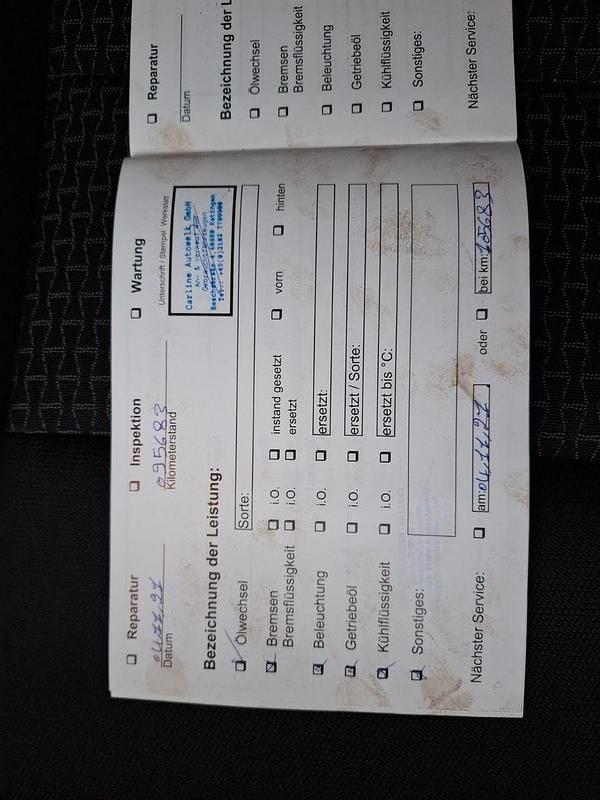 Reparatur Inspektion Wartung
095683
Datum Kilometerstand Unterschrift / Stempel Werkstatt
Carline Autowelt GmbH
Bezeichnung der Leistung:
Ölwechsel Sorte:
Bremsen i.O. instand gesetzt vorn hinten
Bremsflüssigkeit i.O. ersetzt
Beleuchtung i.O. ersetzt:
Getriebeöl i.O. ersetzt / Sorte:
Kühlflüssigkeit i.O. ersetzt bis °C:
Sonstiges:
Nächster Service: am: oder bei km: 105683
Reparatur
Datum
Bezeichnung der L
Ölwechsel
Bremsen
Bremsflüssigkeit
Beleuchtung
Getriebeöl
Kühlflüssigkeit
Sonstiges:
Nächster Service: